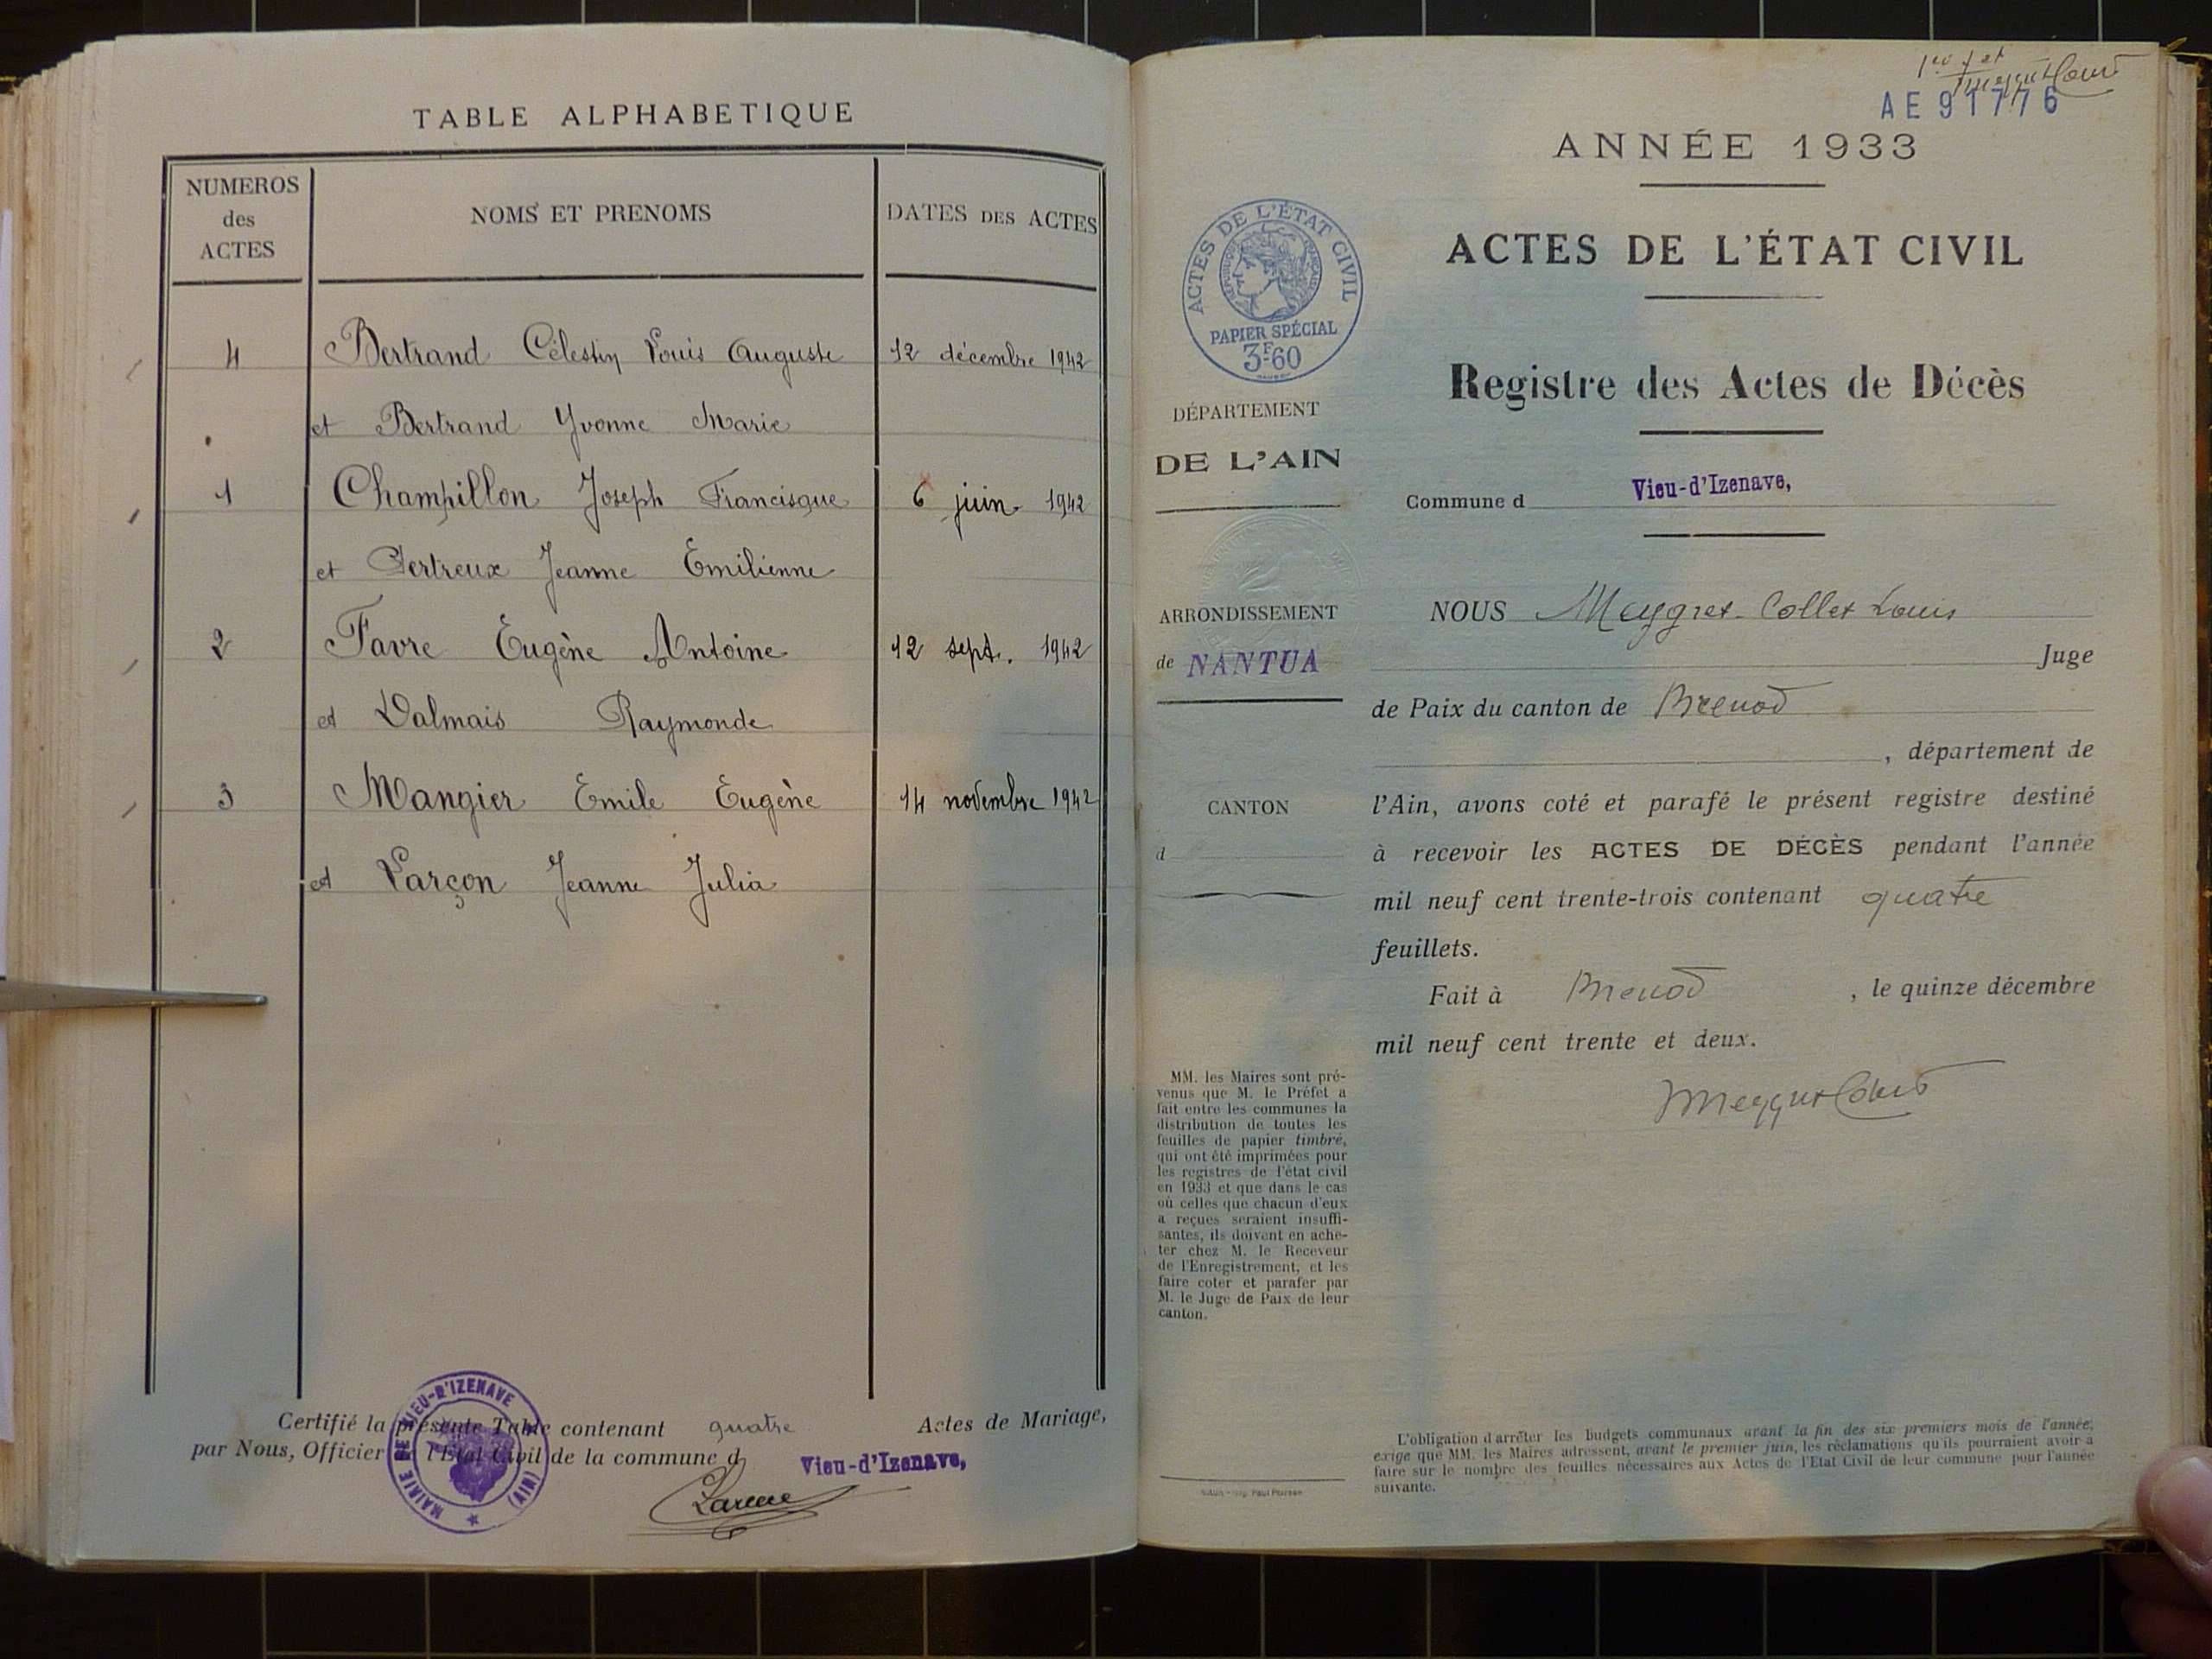 TABLE ALPHABETIQUE
NUMEROS
des
ACTES
NOMS ET PRENOMS
DATES DES ACTES
4 Bertrand Célestin Louis Auguste 12 décembre 1942
et Bertrand Yvonne Marie
1 Champillon Joseph Francisque 6 juin 1942
et Pertreux Jeanne Emilienne
2 Favre Eugène Antoine 12 sept. 1942
et Dalmais Raymonde
3 Mangier Emile Eugène 14 novembre 1942
et Larçon Jeanne Julia
Certifié la présente Table contenant quatre Actes de Mariage,
par Nous, Officier de l'Etat Civil de la commune d Vieu-d'Izenave,
MAIRIE DE VIEU-D'IZENAVE (AIN)
AE 91776
ANNÉE 1933
ACTES DE L'ÉTAT CIVIL
Registre des Actes de Décès
Commune d Vieu-d'Izenave,
ACTES DE L'ÉTAT CIVIL
RÉPUBLIQUE FRANÇAISE
PAPIER SPÉCIAL
3F60
DÉPARTEMENT
DE L'AIN
ARRONDISSEMENT
de NANTUA
CANTON
d
NOUS Meygret-Collet Louis
Juge
de Paix du canton de Brenod
, département de
l'Ain, avons coté et parafé le présent registre destiné
à recevoir les ACTES DE DÉCÈS pendant l'année
mil neuf cent trente-trois contenant quatre
feuillets.
Fait à Brenod, le quinze décembre
mil neuf cent trente et deux.
MM. les Maires sont pré-
venus que M. le Préfet a
fait entre les communes la
distribution de toutes les
feuilles de papier timbré,
qui ont été imprimées pour
les registres de l'état civil
en 1933 et que dans le cas
où celles que chacun d'eux
a reçues seraient insuffi-
santes, ils doivent en ache-
ter chez M. le Receveur
de l'Enregistrement, et les
faire coter et parafer par
M. le Juge de Paix de leur
canton.
L'obligation d'arrêter les Budgets communaux avant la fin des six premiers mois de l'année,
exige que MM. les Maires adressent, avant le premier juin, les réclamations qu'ils pourraient avoir à
faire sur le nombre des feuilles nécessaires aux Actes de l'Etat Civil de leur commune pour l'année
suivante.